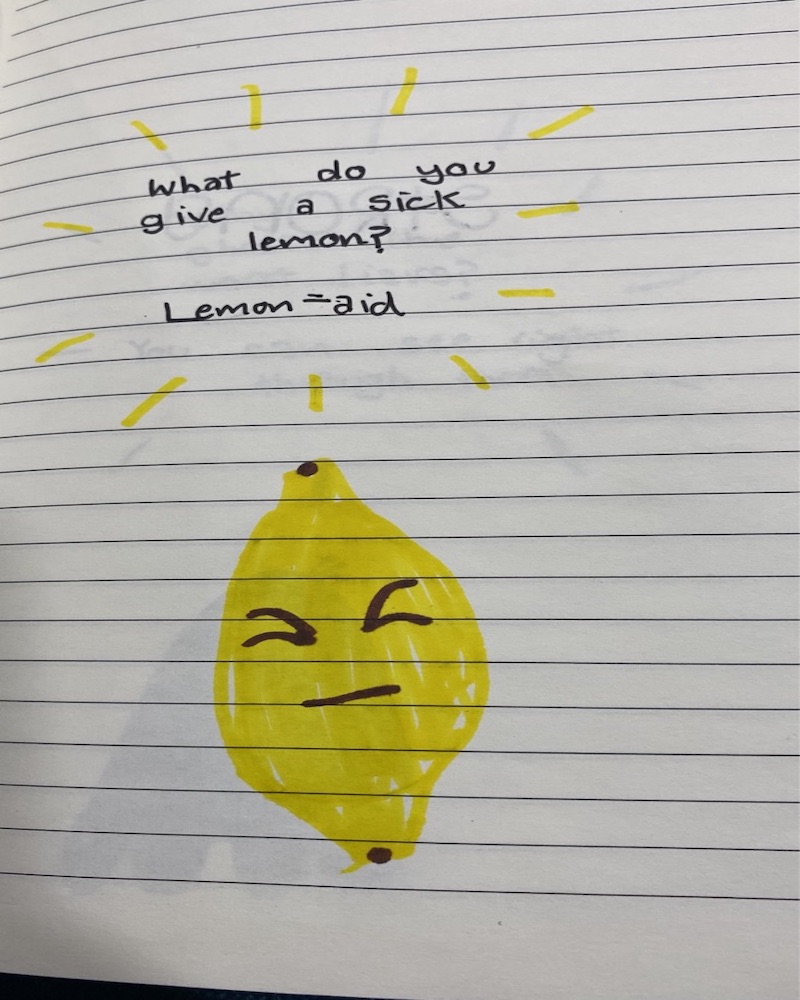 What do you
give a sick
lemon?
Lemon=aid